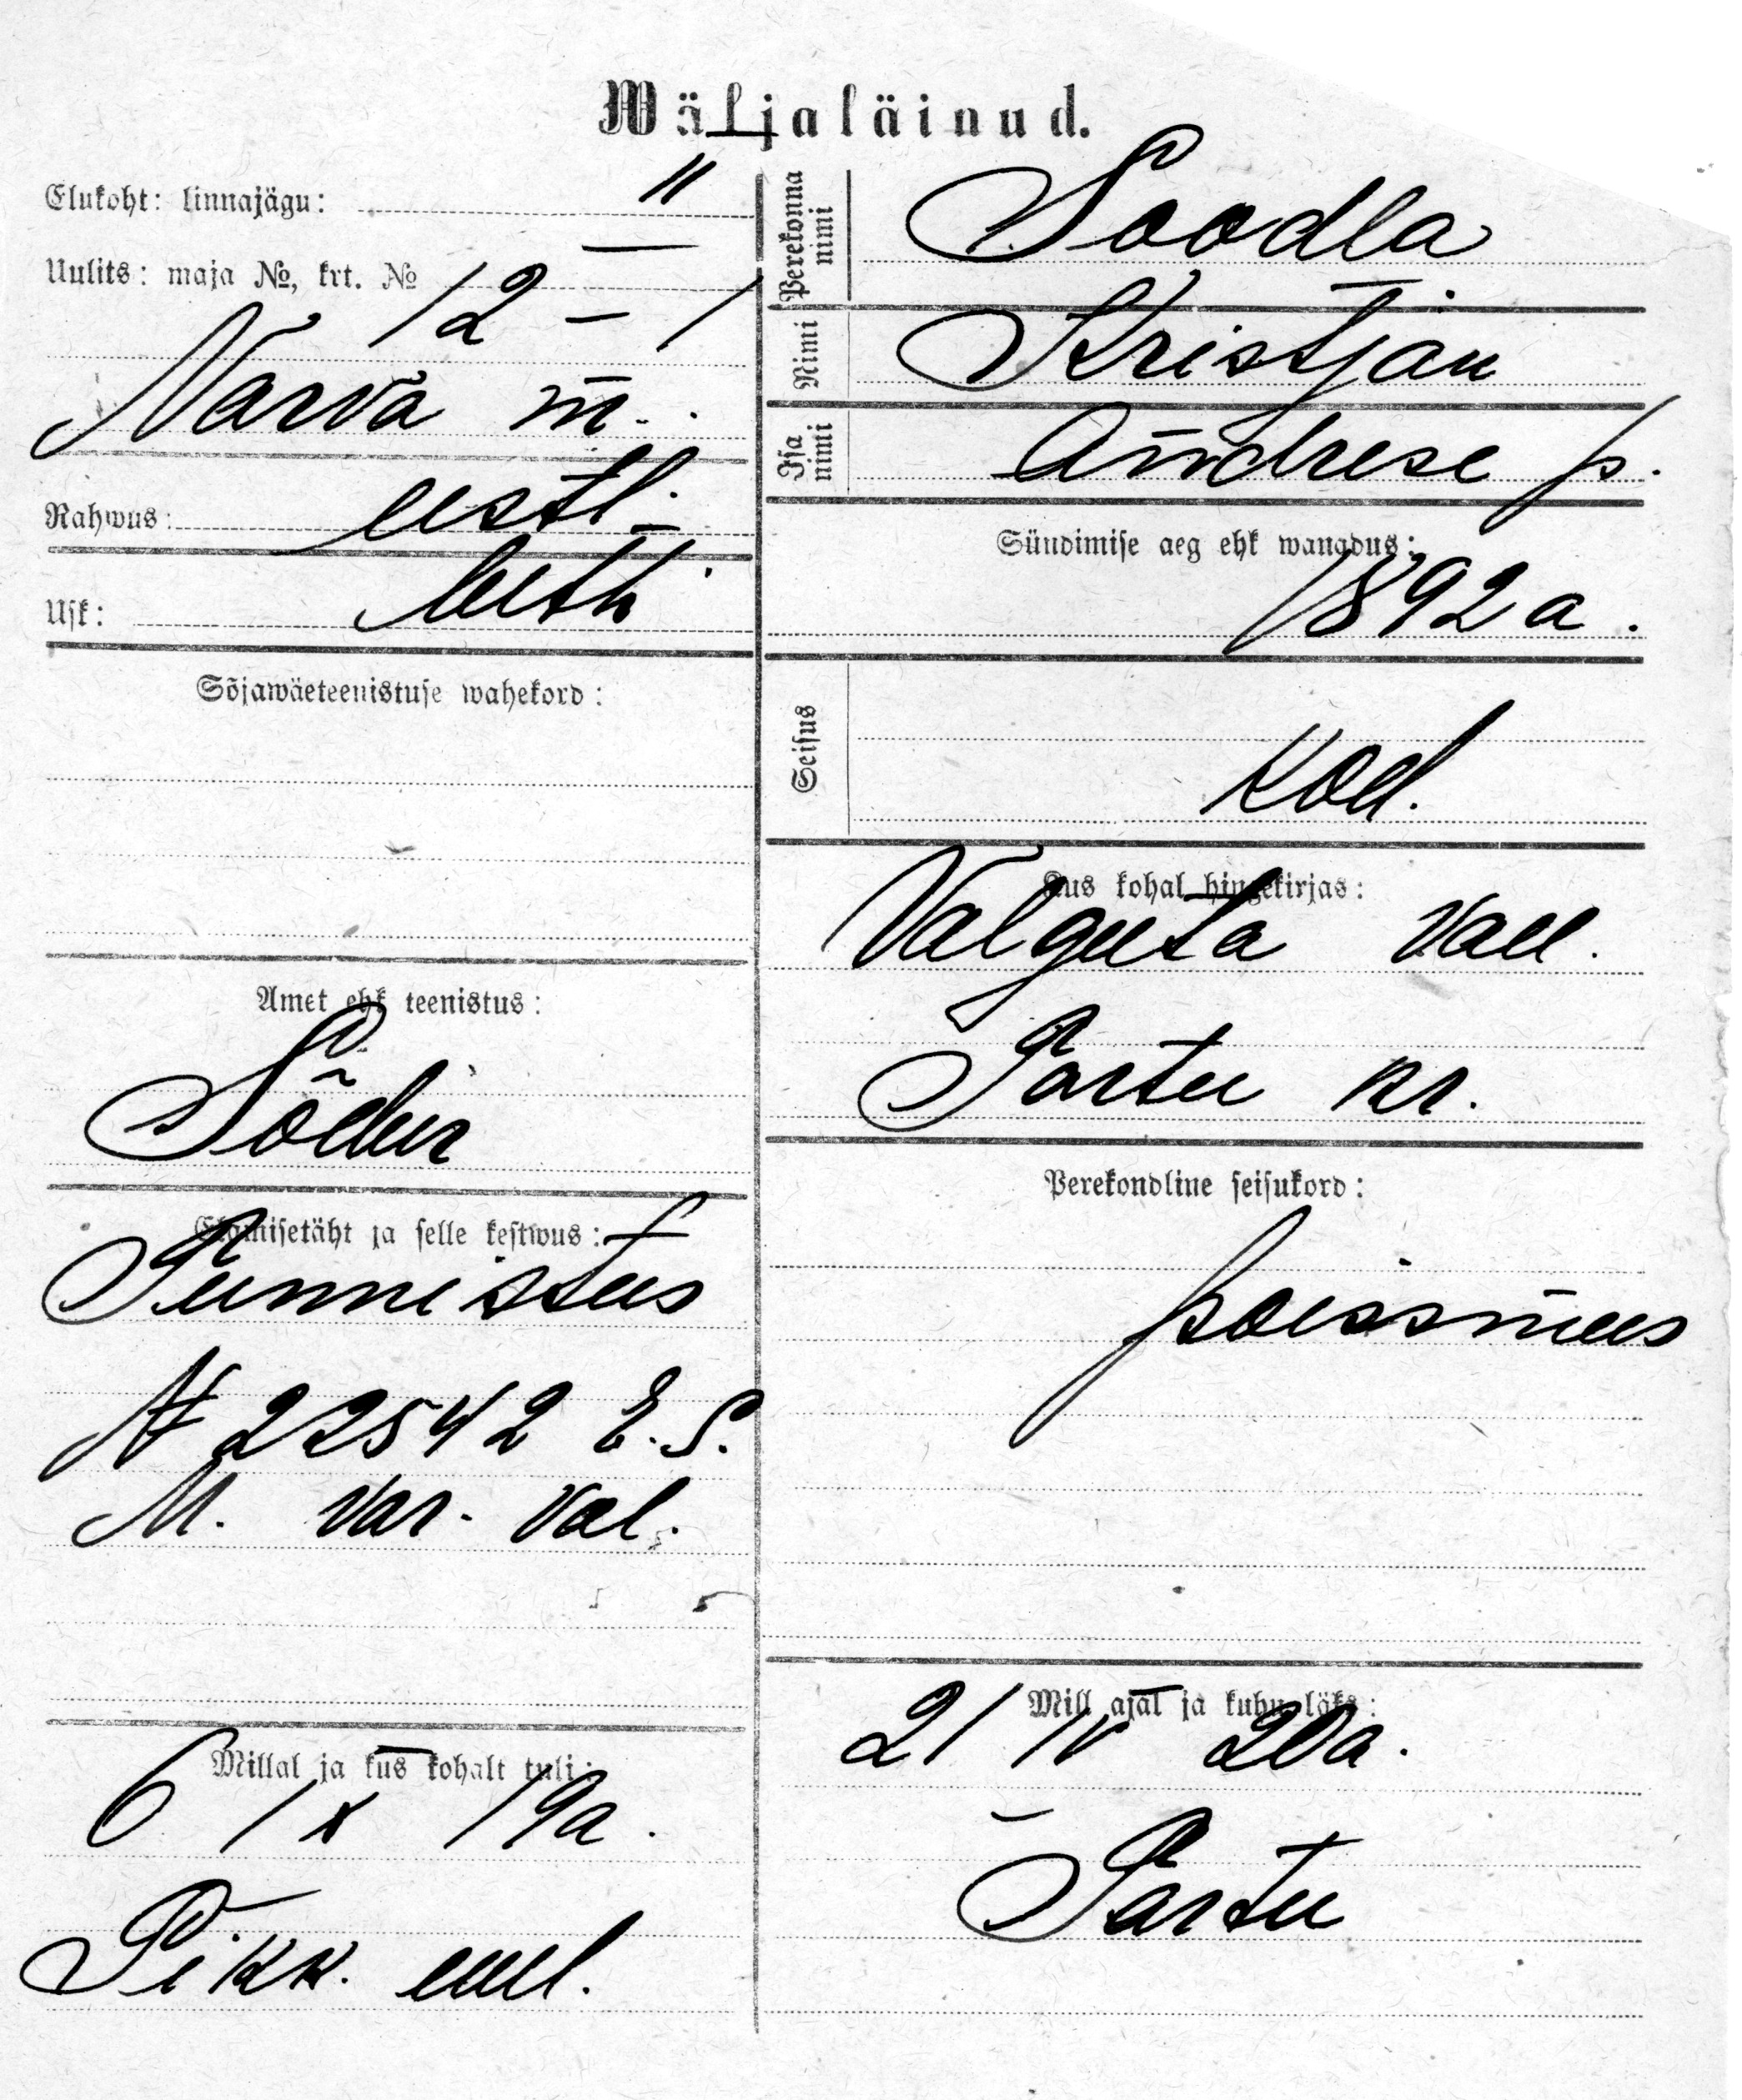 Wäljaläinud.
Elukoht: linnajägu: II
Uulits: maja №, krt. № 12 – 1
Narva m.
Rahwus: eestl.
Usk: luth.
Sõjawäeteenistuse wahekord:
Amet ehk teenistus:
Sõdur
Elamisetäht ja selle kestwus:
Tunnistus
№ 22542 E. S.
M. Var. Val.
Millal ja kus kohalt tuli:
6 IX 19 a.
Pikk. uul.
Perekonna nimi Soodla
Nimi Kristjan
Isa nimi Andrese p.
Sündimise aeg ehk wanadus:
1892 a.
Seisus
kod.
Kus kohal hingekirjas:
Valguta vall.
Tartu kr.
Perekondline seisukord:
poissmees
Mill ajal ja kuhu läks:
21 IV 20 a.
Tartu